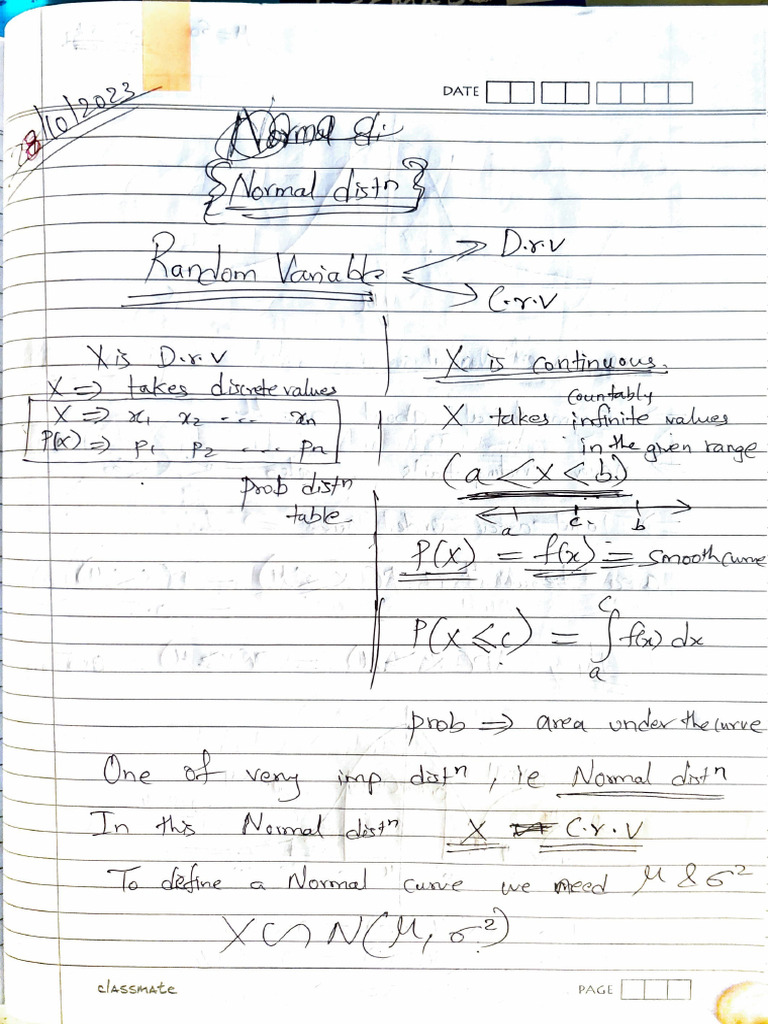 DATE
8/10/2023
Normal di
{Normal distn}
Random Variable
D.r.v
C.r.v
X is D.r.v
X => takes discrete values
X => x1 x2 ---- xn
P(x) => p1 p2 ---- pn
prob distn
table
X is continuous.
countably
X takes infinite values
in the given range
(a < x < b)
a c. b
P(X) = f(x) = smooth curve
P(X ≤ c) = ∫ₐᶜ f(x) dx
prob => area under the curve
One of very imp distn, ie Normal distn
In this Normal distn X C.r.v
To define a Normal curve we need μ & σ²
X ∽ N(μ, σ²)
classmate
PAGE